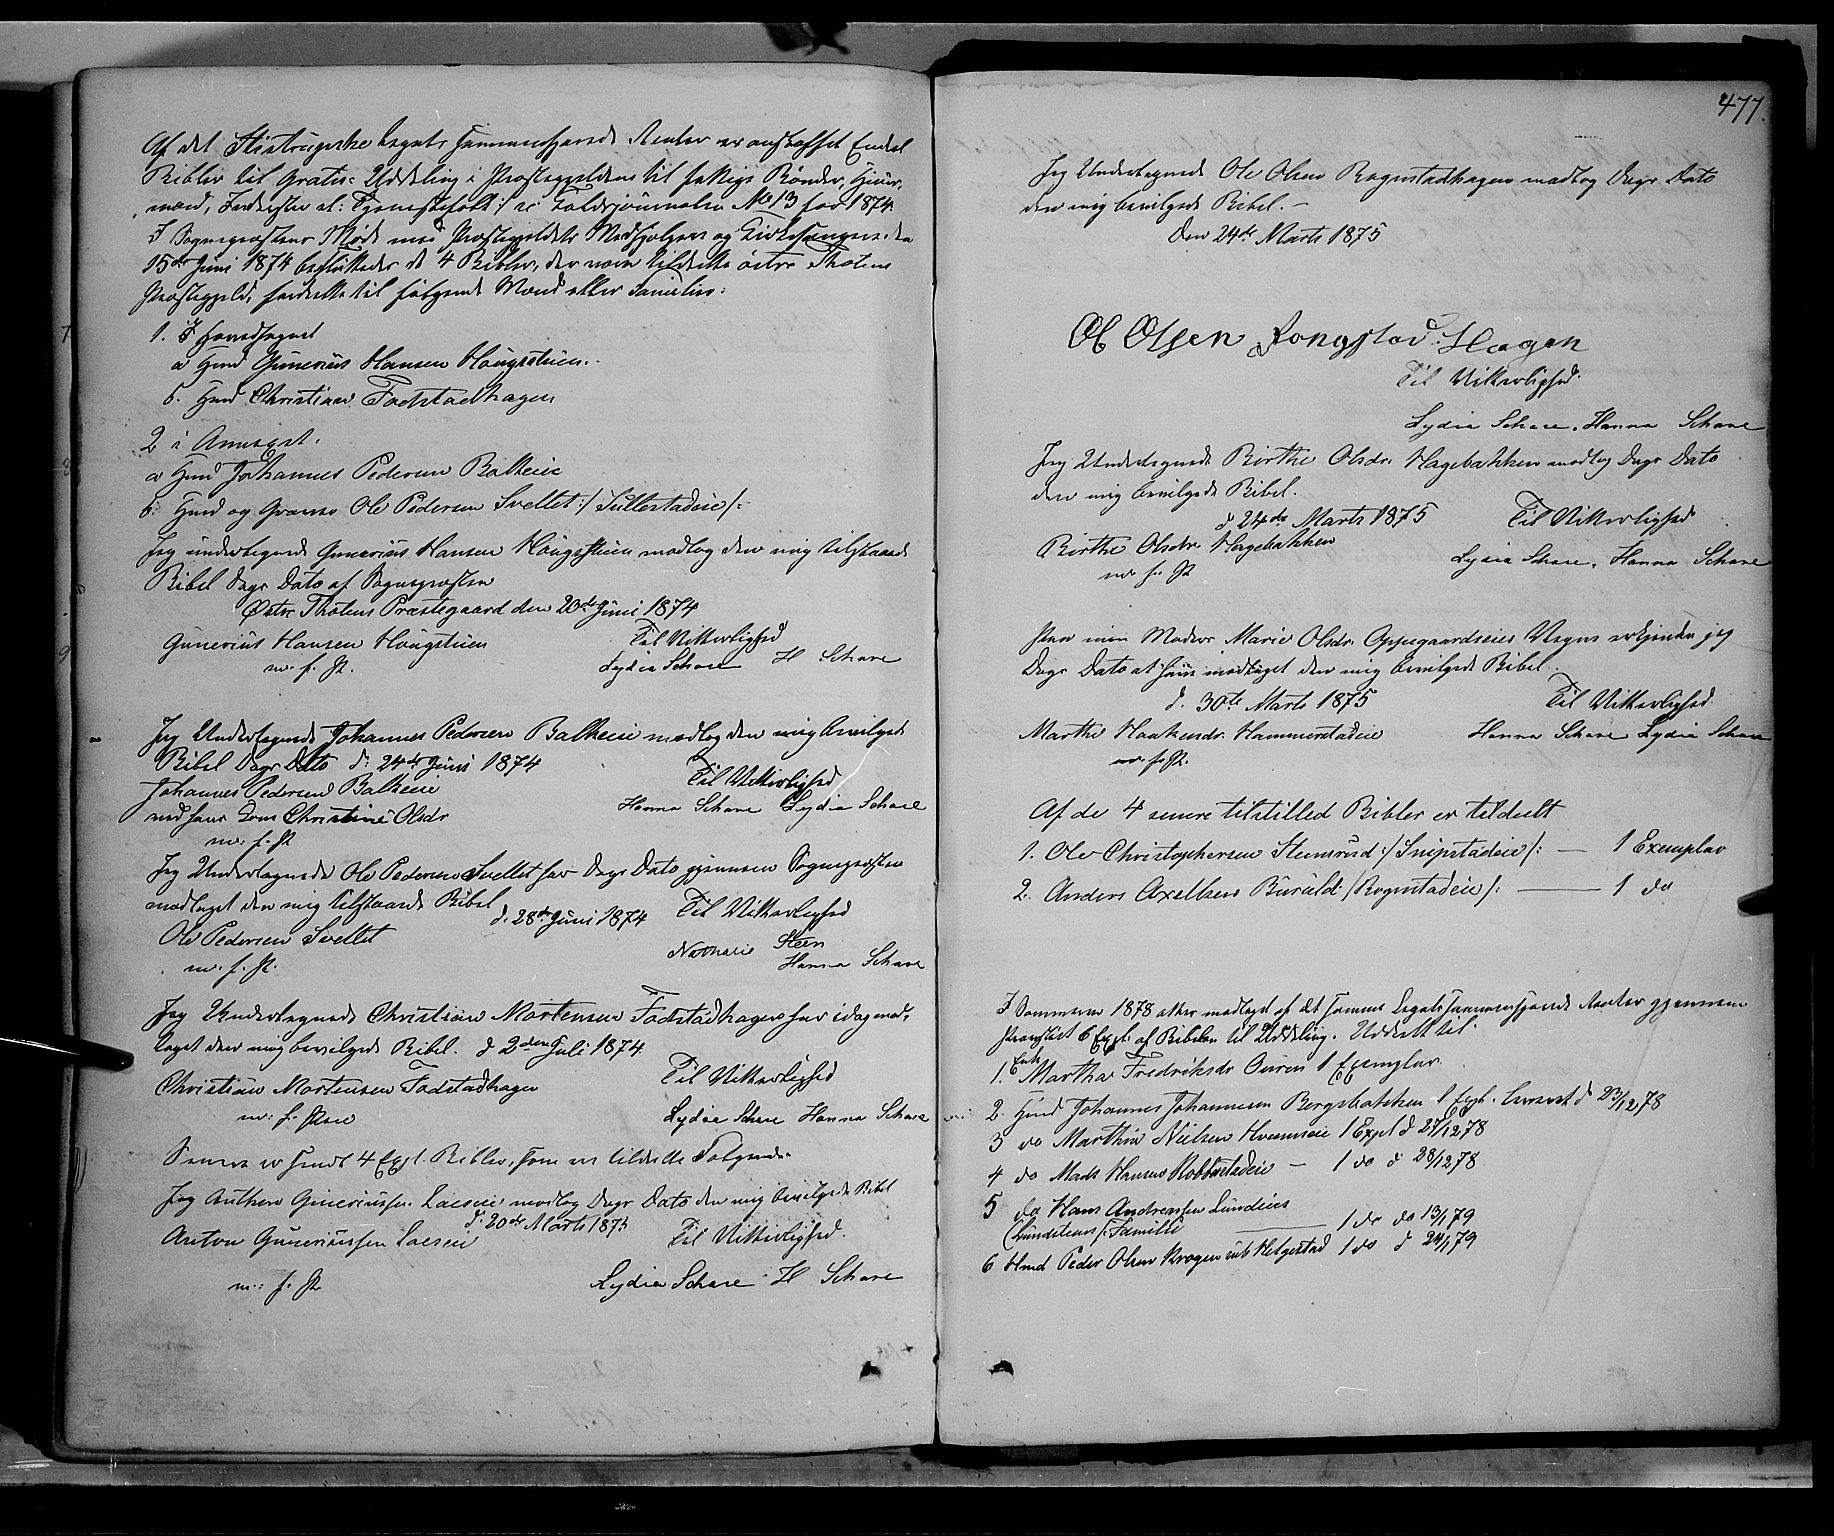 Af det Stistrupske Legats sammensparede Renter er anskaffet Endel
Bibler til Gratis-Uddeling i Præstegjeldene til fattige Bønder, Huus-
mænd, Inderster el: Tjenestefolk :/ se Kaldsjournalen No 13 for 1874.
I Sognepræstens Møde med Præstegjeldets Medhjelpere og Kirkesangere den
15de Juni 1874 besluttedes de 4 Bibler, der vare tildelte østre Thotens
Præstegjeld, fordelte til følgende Mænd eller Familier:
1. I Hovedsognet
a Hmd Gunerius Hansen Haugstuen.
b. Hmd Christian Fodstadhagen
2 i Annexet.
a Hmd Johannes Pedersen Balkeeie
b. Hmd og Ole Pedersen Svellet :/ Sullestadeie /:
Jeg undertegnede Gunerius Hansen Haugstuen modtog den mig tilstaaede
Bibel Dags Dato af Sognepræsten
Østre Thotens Præstegaard den 20de Juni 1874
Gunerius Hansen Haugstuen
m. f. P.
Til Vitterlighed
Lydia Schare H Schare
Jeg Undertegnede Johannes Pedersen Balkeeie modtog den mig bevilgede
Bibel Dags Dato d: 24de Juni 1874
Johannes Pedersen Balkeeie
ved hans Christine Olsdr
m. f. P
Til Vitterlighed
Hanna Schare Lydia Schare
Jeg Undertegnede Ole Pedersen Svellet har Dags Dato gjennem Sognepræsten
modtaget den mig tilstaaede Bibel
d. 28de Juni 1874
Ole Pedersen Svellet
m. f. P.
Til Vitterlighed
Nathalie Steen
Hanna Schare
Jeg Undertegnede Christian Mortensen Fodstadhagen har idag mod-
taget den mig bevilgede Bibel. d 2den Juli 1874.
Christian Mortensen Fodstadhagen
m: f. Pen
Til Vitterlighed
Lydia Schare Hanna Schare
Senere er sendt 4 Expl. Bibler, som er tildelte Følgende
Jeg Anthon Guneriussen Laeseie modtog Dags Dato den mig bevilgede Bibel
d. 20de Marts 1875
Anton Guneriussen Laeseie
m: f. P.
Til Vitterlighed.
Lydia Schare H Schare
477.
Jeg Undertegnede Ole Olsen Rognstadhagen modtog Dags Dato
den mig bevilgede Bibel.
den 24de Marts 1875
Ol Olsen Rongstad Hagen
Til Vitterlighed.
Lydia Schare, Hanna Schare
Jeg Undertegnede Birthe Olsdr. Hagebakken modtog Dags Dato
den mig bevilgede Bibel.
d 24de Marts 1875
Til Vitterlighed
Birthe Olsdr. Hagebakken
m. f. P
Lydia Schare, Hanna Schare
Paa min Moder Marie Olsdr. Oppegaardseies Vegne erkjender jeg
Dags Dato at have modtaget den mig bevilgede Bibel.
d. 30te Marts 1875
Til Vitterlighed
Marthe Haakensdr. Hammerstadeie
m. f. P.
Hanna Schare Lydia Schare
Af de 4 senere tilstilled Bibler er tildeelt
1. Ole Christophersen Stemsrud :/ Snipstadeie /: — 1 Exemplar
2. Anders Axelsen Buruld / Rognstadeie /: — 1 do
I Sommeren 1878 atter modtaget af det samme Legats sammensparede Renter gjennem
Provstiet 6 Expl. af Bibelen til Uddeling. Uddeelt til
1. Enke Martha Fredriksdr Ouren 1 Exemplar
2. Hmd Johannes Johannesen Bergsbakken 1 Expl. leveret d 23/12 78
3 do Marthin Nielsen Hveemeie 1 Expl d 27/12 78
4 do Mads Hansen Kolbustadeie — 1 do d 28/12 78
5 do Hans Andreassen Lundeie
(Lundstuen) /: Familie — 1 do do 13/1 79
6 Hmd Peder Olsen Kragen sub Helgestad 1 do d 24/1 79